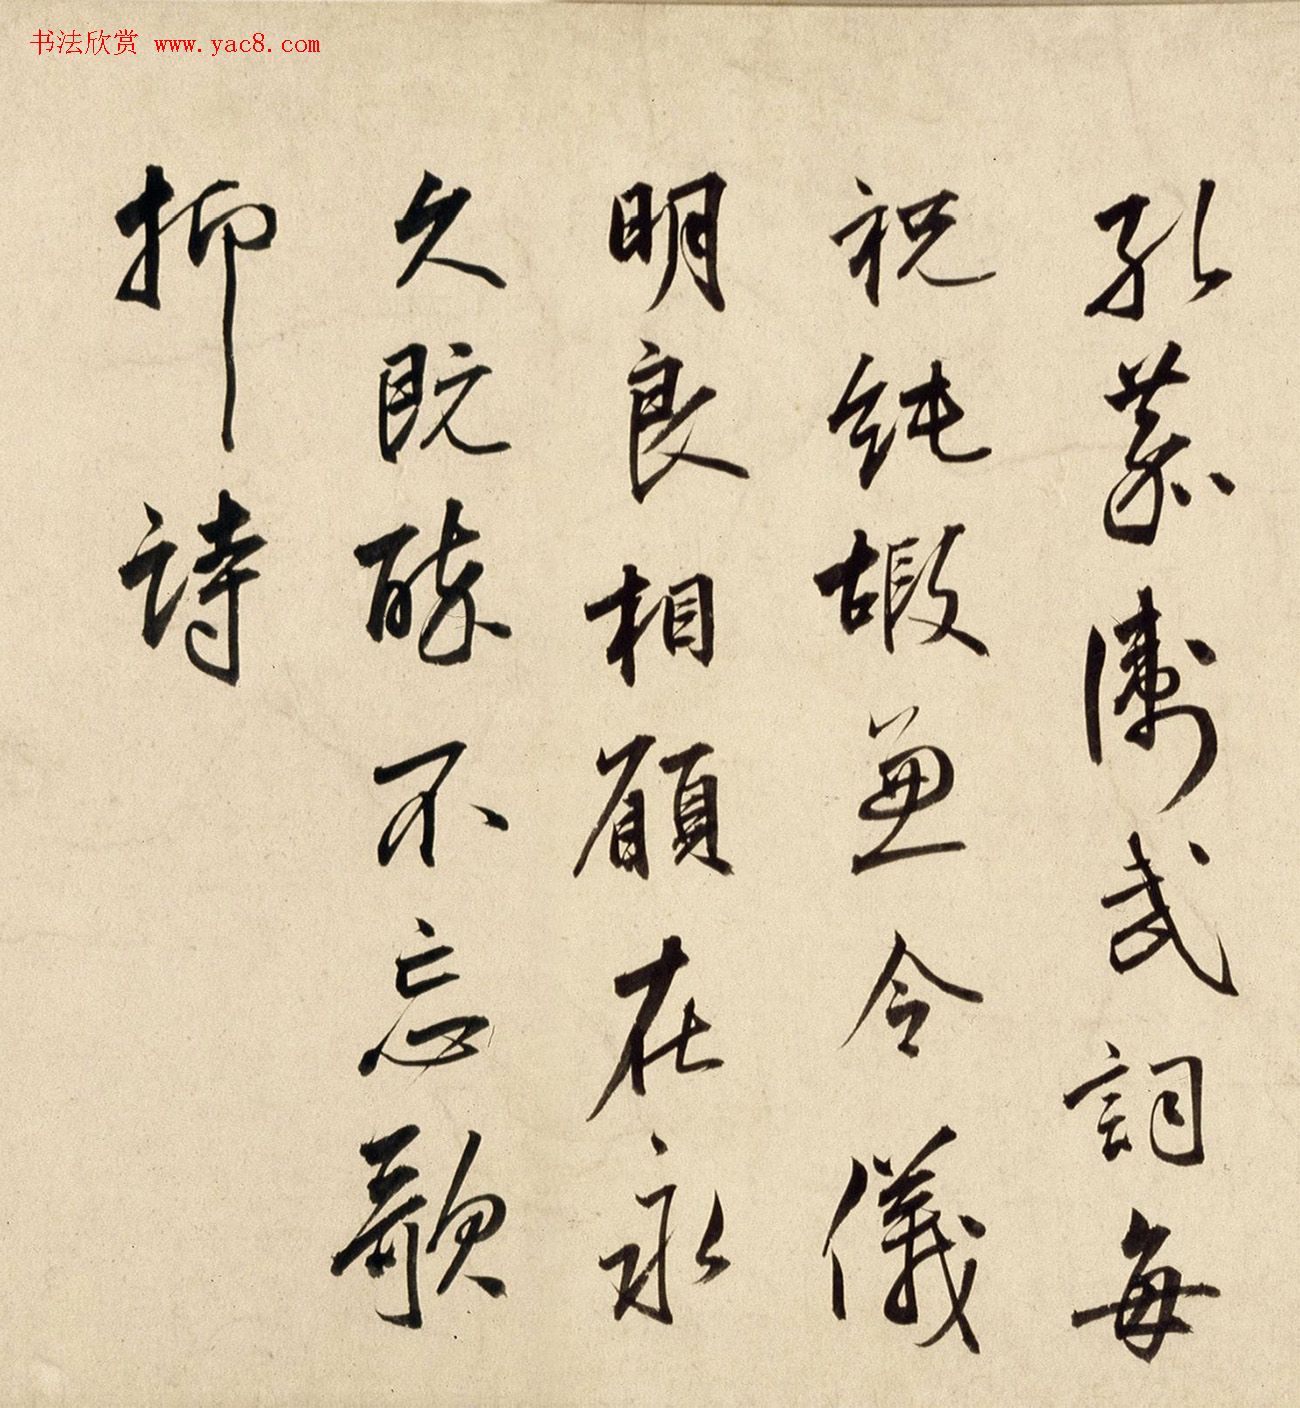 书法欣赏 www.yac8.com
孔慕衛武詞每
祝純嘏兼令儀
明良相顧在永
久既醉不忘歌
抑詩